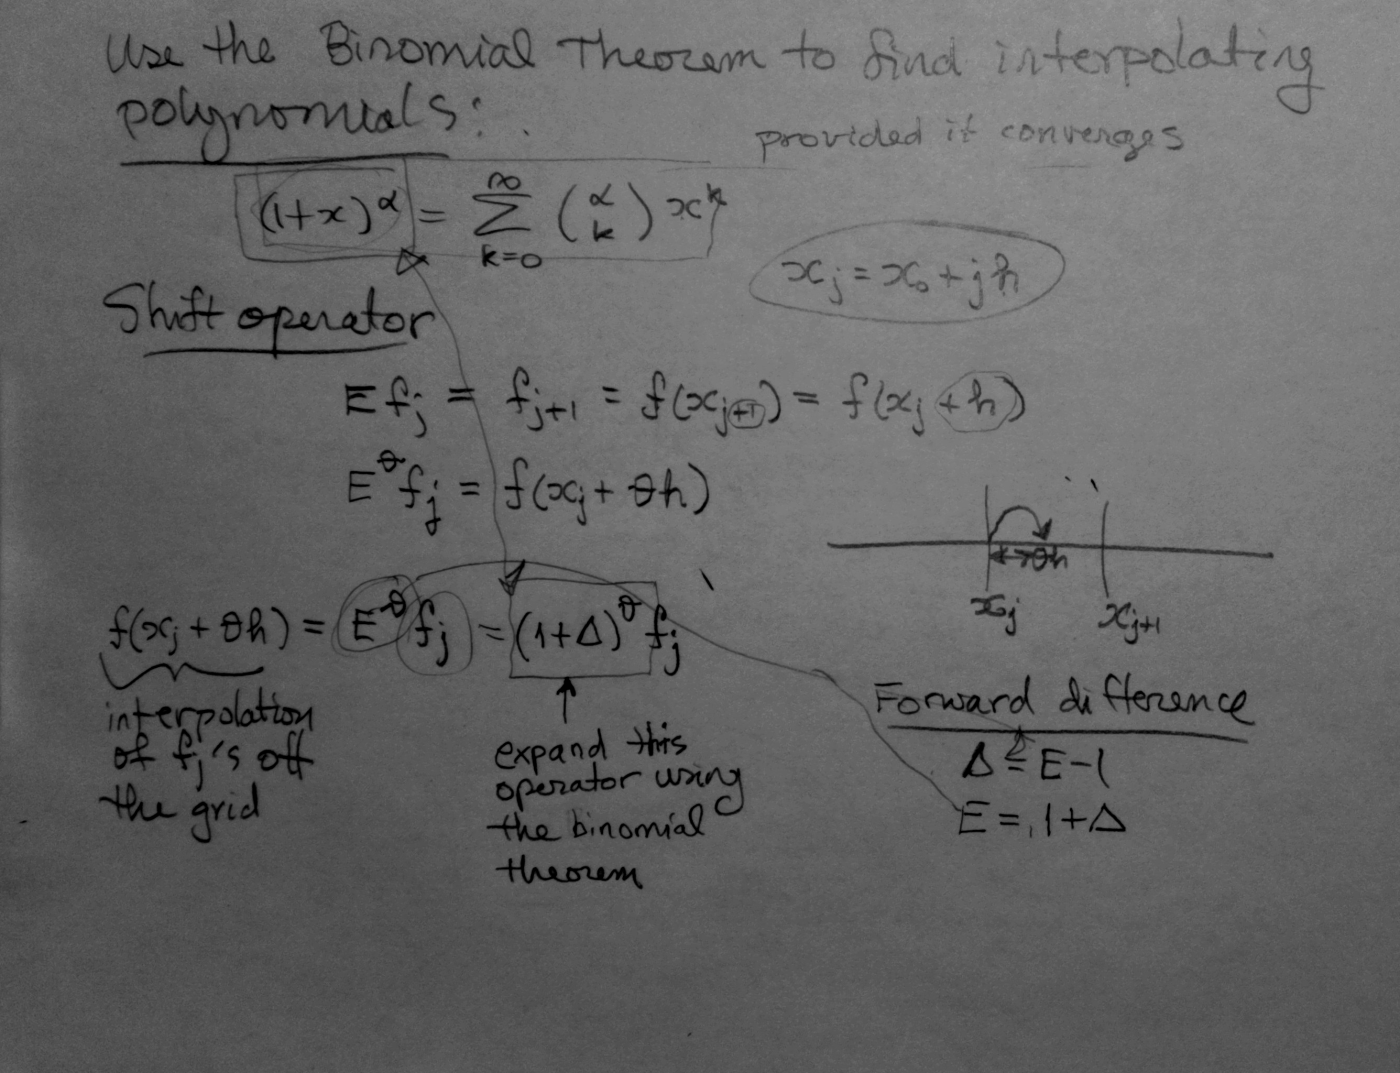 Use the Binomial Theorem to find interpolating
polynomials:
provided it converges
(1+x)^α = ∑_{k=0}^{∞} (α k) x^k
x_j = x_0 + jh
Shift operator
E f_j = f_{j+1} = f(x_{j+1}) = f(x_j + h)
E^θ f_j = f(x_j + θh)
θh
x_j x_{j+1}
f(x_j + θh) = E^θ f_j = (1+Δ)^θ f_j
interpolation
of f_j's off
the grid
expand this
operator using
the binomial
theorem
Forward difference
Δ = E-1
E = 1+Δ